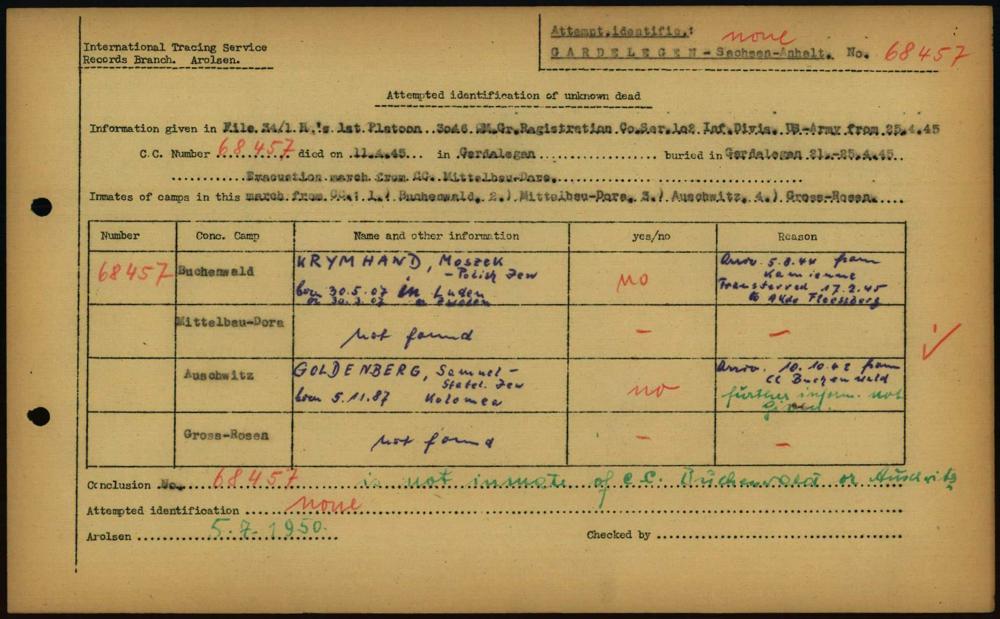 International Tracing Service
Records Branch. Arolsen.
Attempt.identific.: none
GARDELEGEN - Sachsen-Anhalt. No. 68457
Attempted identification of unknown dead
Information given in File 34/1 1st Platoon 3046 Gr.Registration Co.Ser.102 Inf.Divis. US-Army from 25.4.45
C.C. Number 68457 died on 11.4.45 in Gardelegen buried in Gardelegen 21.-25.4.45
Evacuation march from CC. Mittelbau-Dora.
Inmates of camps in this march from CC.: 1.) Buchenwald, 2.) Mittelbau-Dora, 3.) Auschwitz, 4.) Gross-Rosen.
Number Conc. Camp Name and other information yes/no Reason
68457 Buchenwald KRYMHAND, Moszek - Polish Jew born 30.5.07 in Luden or 30.3.07 no Arriv. 5.8.44 from Kamienne Transferred 17.2.45 to Akdo Flossberg
Mittelbau-Dora not found - -
Auschwitz GOLDENBERG, Samuel - Statel. Jew born 5.11.87 Kolomea no Arriv. 10.10.42 from CC Buchenwald further inform. not given.
Gross-Rosen not found - -
Conclusion No. 68457 is not inmate of C.C. Buchenwald or Auschwitz
Attempted identification none
Arolsen 5.7.1950. Checked by